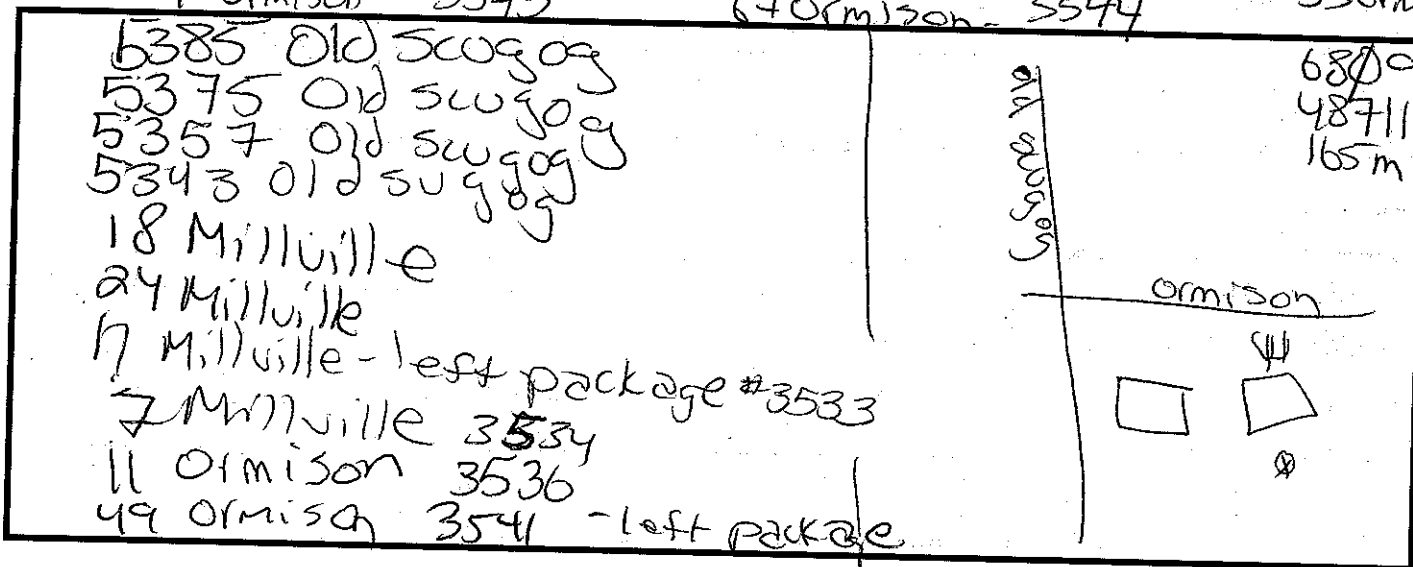 Ormison 3544
5385 Old Scugog
5375 Old scugog
5357 Old scugog
5343 Old suggog
18 Millville
24 Millville
17 Millville - left package #3533
7 Millville 3534
11 Ormison 3536
49 Ormison 3541 - left package
old scugog
48711
165m
ormison